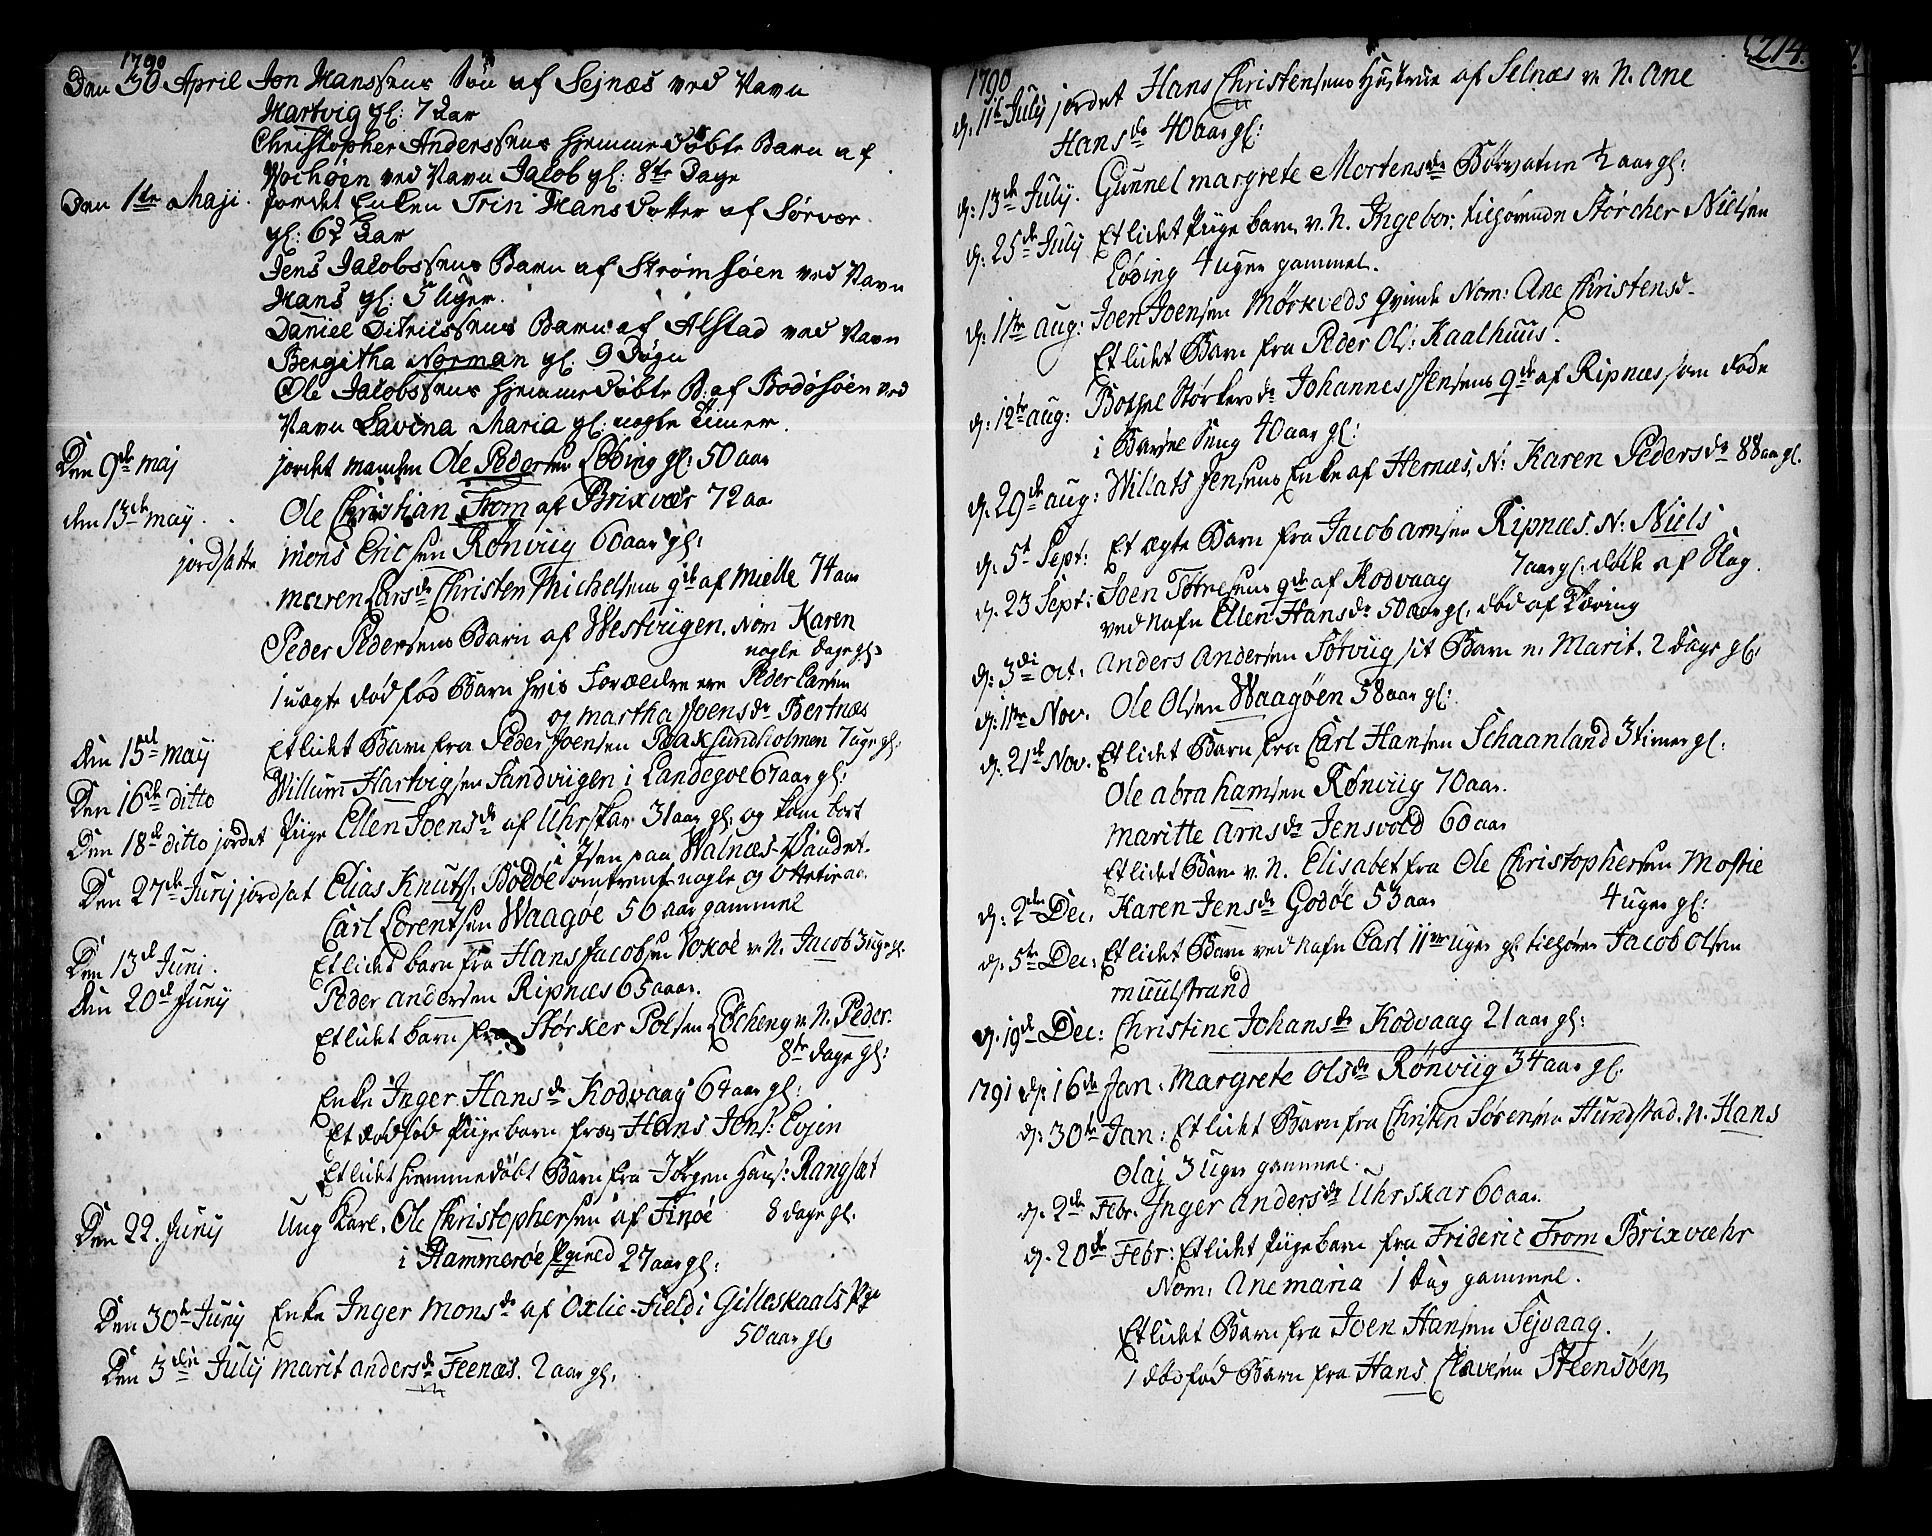 1790
Den 30 April Jon Hanssens Søn af Sejnæs ved Navn
Hartvig gl: 7 Aar
Christopher Anderssens hjemmedøbte Barn af
ved Navn Jacob gl: 8te Dage
Den 1te Maji. Jordet Enken Trin Hansdatter af Sørvær
gl: 67 Aar
Jens Jacobssens Barn af Strømsøen ved Navn
Hans gl: 5 Uger.
Daniel Ditrissens Barn af Alstad ved Navn
Bergitha Norman gl. 9 Døgn
Ole Jacobssens hjemmedøbte B: af Bodøsøen ved
Navn Lavina Maria gl: nogle Timer.
Den 9de Maj jordet manden Ole Pedersen Løding gl: 50 aar
den 13de may. Ole Christian From af Brixvær 72 aar
jordsatte Mons Ericsen Rønviig 60 aar gl:
Maren Larsdr Christen Michelsens qde af Mielle 74 aar
Peder Pedersens Barn af Westvigen. Nom Karen
nogle dage gl:
1 uægte dødfød Barn hvis Forældre ere Peder Larsen
og Martha Joensdr Bertnæs
Den 15de may Et lidet Barn fra Peder Joensen Baksundholmen 7 uge gl:
Den 16de ditto Willum Hartvigsen Sandviigen i Landegoe 67 aar gl:
Den 18de ditto jordet Piige Ellen Joensdr af Uhrskar 31 aar gl: og kom bort
i Isen paa Walnæs-Vandet.
Den 27de Junij jordsat Elias Knuts: Bodøe omtrent nogle og ottetie aar
Carl Lorentsen Waagøe 56 aar gammel
Den 13d Juni. Et lidet barn fra Hans Jacobsen v. N. Jacob 3 uge gl.
den 20d Junij Peder Andersen Ripnæs 65 aaar.
Et lidet barn fra Størker Polsen Løcheng v. N. Peder.
8te dage gl:
Enke Inger Hansdr Kodvaag 64 aar gl:
Et dødfød Piigebarn fra Hans Jens: Evjen
Et lidet hiemmedøbt Barn fra Jørgen Hans: Rangsæt
8 dage gl:
Den 22. Junij Ung Karl. Ole Christophersen af Finøe
i Hammerøe Pgield 27 aar gl:
Den 30te Junij Enke Inger Monsdr af Oxlie-Field i Gilleskaals Pge
50 aar gl:
Den 3die Julij Marit Andersdr Feenæs. 2 aar gl.
274.
1790
d. 11te Julij jordet Hans Christensens Hustrue af Selnæs v. N. Ane
Hansdr 40 aar gl:
d: 13de July. Gunnel Margrete Mortensdr Børvatn ½ aar gl:
d: 25de July Et lidet Piige barn v. N. Ingebor: tilhørende Størcher Nielsen
Løding 4 uger gammel.
d: 1ste aug: Joen Joensen Mørkveds Qvinde Nom: Ane Christensd.
Et lidet Barn fra Peder Ols: Kaalhuus.
d: 12te aug: Bothel Størkersdr Johannes Jensens qde af Ripnæs som døde
i Barsel Seng 40 aar gl:
d: 29de aug: Willats Jensens Enke af Hernæs, N: Karen Pedersdr 88 aar gl.
d: 5t Sept: Et ægte Barn fra Jacob Arnsen Ripnæs. N: Niels
7 aar gl: døde af Slag.
d. 23 Sept: Joen qde af Kodvaag
ved nafn Ellen Hansdr 50 aar gl. død af Tæring
d: 3di oct. Anders Andersen Sørviig sit Barn n: Marit. 2 dage gl:
d: 1ste Nov. Ole Olsen Waagøen 58 aar gl:
d: 21de Nov. Et lidet Barn fra Carl Hansen Schaanland 3 timer gl:
Ole Abrahamsen Rønviig 70 aar.
Maritte Arnsdr Jensvold 60 aar
Et lidet Barn v. N. Elisabet fra Ole Christophersen Moslie
4 uger gl:
d: 2den Dec. Karen Jensdr Godøe 53 aar
d: 5te Dec: Et lidet Barn ved nafn Carl 11ve uger gl tilhører Jacob Olsen
Muulstrand
d. 19de Dec: Christine Johansdr Kodvaag 21 aar gl:
1791 d: 16de Jan: Margrete Olsdr Rønviig 34 aar gl.
d: 30te Jan: Et lidet Barn fra Christen Sørensen Hundstad. N. Hans
Olaj 3 uger gammel.
d: 2de Febr. Inger Andersdr Uhrskar 60 aar.
d: 20de Febr: Et lidet Piigebarn fra Frideric From Brixvæhr
Nom: Anemaria 1 dag gammel.
Et lidet Barn fra Joen Hansen Sejvaag.
1 dødfød Barn fra Hans Clavesen Steensøen